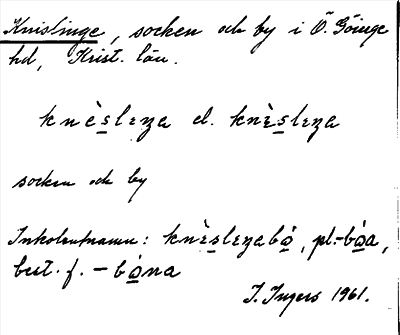 Knislinge, socken och by i Ö. Göinge
hd, Krist. län.
knèslɛŋa el. knɛ̀slɛŋa
socken och by
Inkolentnamn: knɛ̀slɛŋabó, pl. -bóa,
best. f. - bóna
I. Ingers 1961.